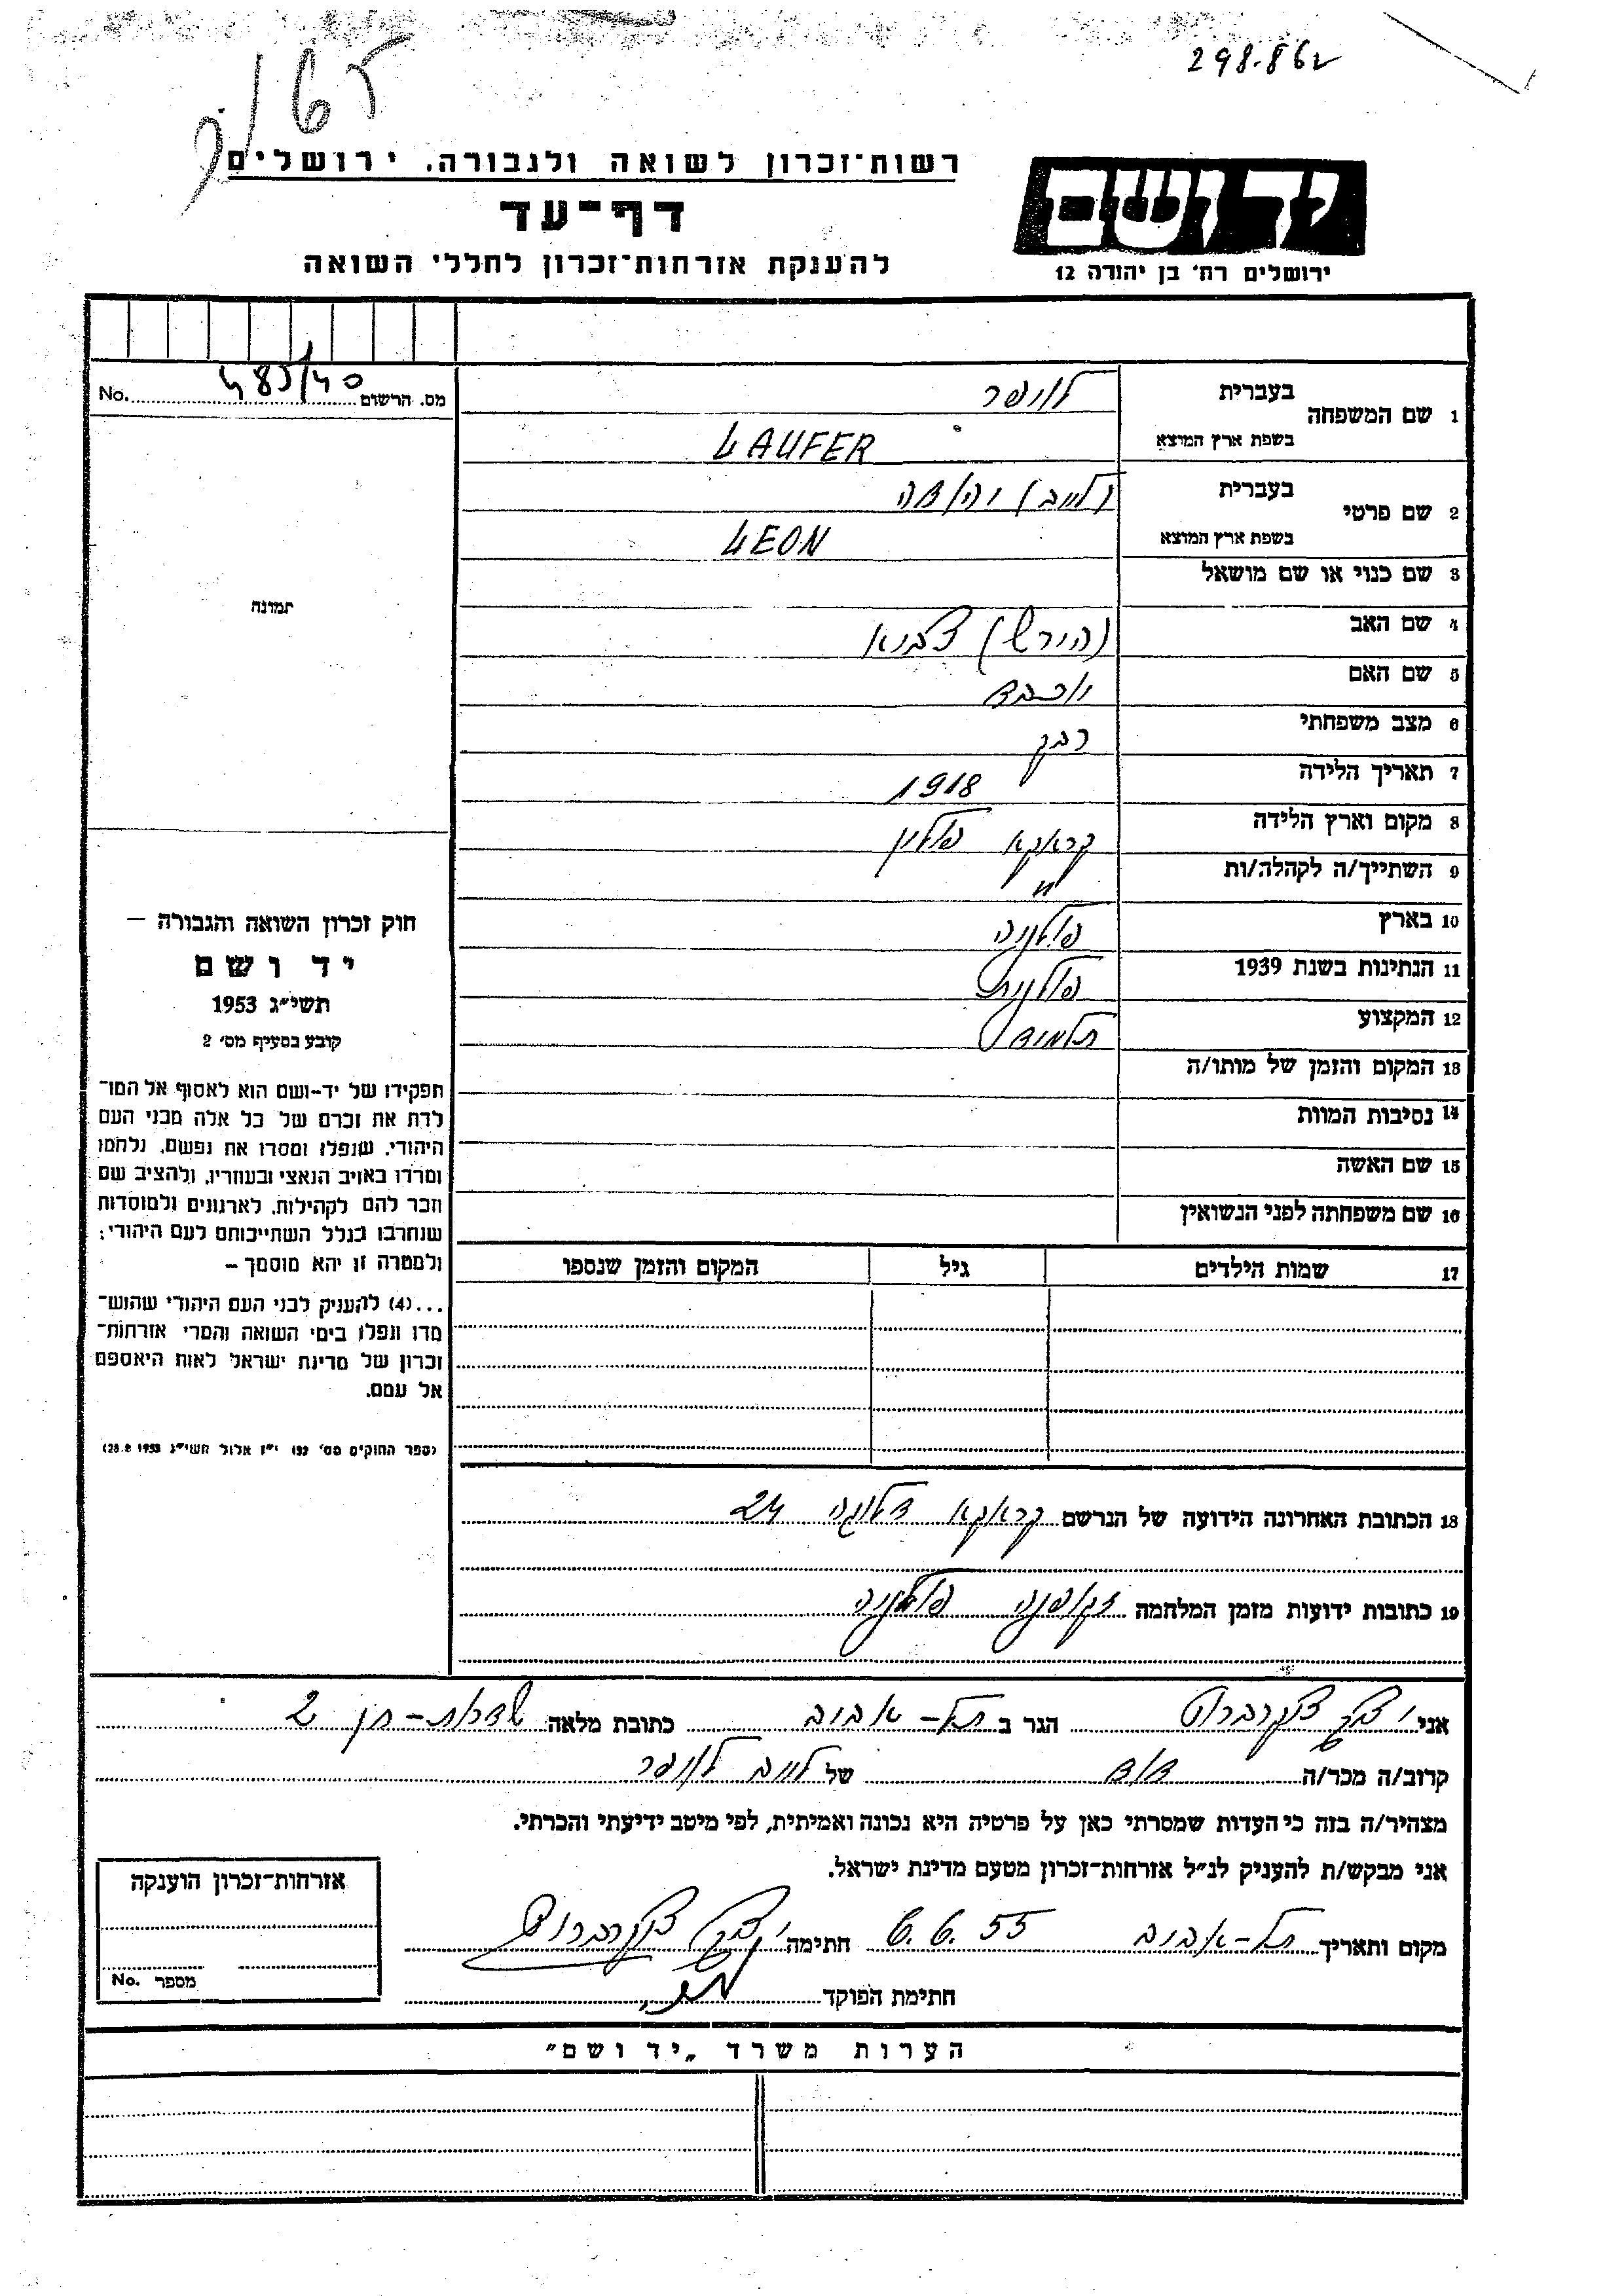 165/ק
298.862
רשות־זכרון לשואה ולגבורה, ירושלים
דף־עד
להענקת אזרחות־זכרון לחללי השואה
יד ושם
ירושלים רח׳ בן יהודה 12
מס. הרשום 485/40 No.
1 שם המשפחה בעברית לאופר
בשפת ארץ המוצא LAUFER
2 שם פרטי בעברית (לייב) יהודה
בשפת ארץ המוצא LEON
3 שם כנוי או שם מושאל
4 שם האב (הירש) צבי
5 שם האם יוכבד
6 מצב משפחתי רבק
7 תאריך הלידה 1918
8 מקום וארץ הלידה קראקא פולין
9 השתייך/ה לקהלה/ות "
10 בארץ פולניה
11 הנתינות בשנת 1939 פולנית
12 המקצוע תלמיד
13 המקום והזמן של מותו/ה
14 נסיבות המוות
15 שם האשה
16 שם משפחתה לפני הנשואין
17 שמות הילדים גיל המקום והזמן שנספו
תמונה
חוק זכרון השואה והגבורה —
יד ושם
תשי״ג 1953
קובע בסעיף מס׳ 2
תפקידו של יד-ושם הוא לאסוף אל המו־
לדת את זכרם של כל אלה מבני העם
היהודי, שנפלו ומסרו את נפשם, נלחמו
ומרדו באויב הנאצי ובעוזריו, ולהציב שם
וזכר להם לקהילות, לארגונים ולמוסדות
שנחרבו בגלל השתייכותם לעם היהודי;
ולמטרה זו יהא מוסמך –
...(4) להעניק לבני העם היהודי שהוש־
מדו ונפלו בימי השואה והמרי אזרחות־
זכרון של מדינת ישראל לאות היאספם
אל עמם.
(ספר החוקים מס׳ 132 י״ז אלול תשי״ג 28.8.1953)
18 הכתובת האחרונה הידועה של הנרשם קראקא דלוגה 24
19 כתובות ידועות מזמן המלחמה פולניה
אני יצחק צוקרברוט הגר ב תל-אביב כתובת מלאה שדרות-חן 2
קרוב/ה מכר/ה דוד של לייב לאופר
מצהיר/ה בזה כי העדות שמסרתי כאן על פרטיה היא נכונה ואמיתית, לפי מיטב ידיעתי והכרתי.
אני מבקש/ת להעניק לנ״ל אזרחות־זכרון מטעם מדינת ישראל.
מקום ותאריך תל-אביב 6.6.55 חתימה יצחק צוקרברוט
חתימת הפוקד
אזרחות־זכרון הוענקה
מספר No.
הערות משרד „יד ושם״